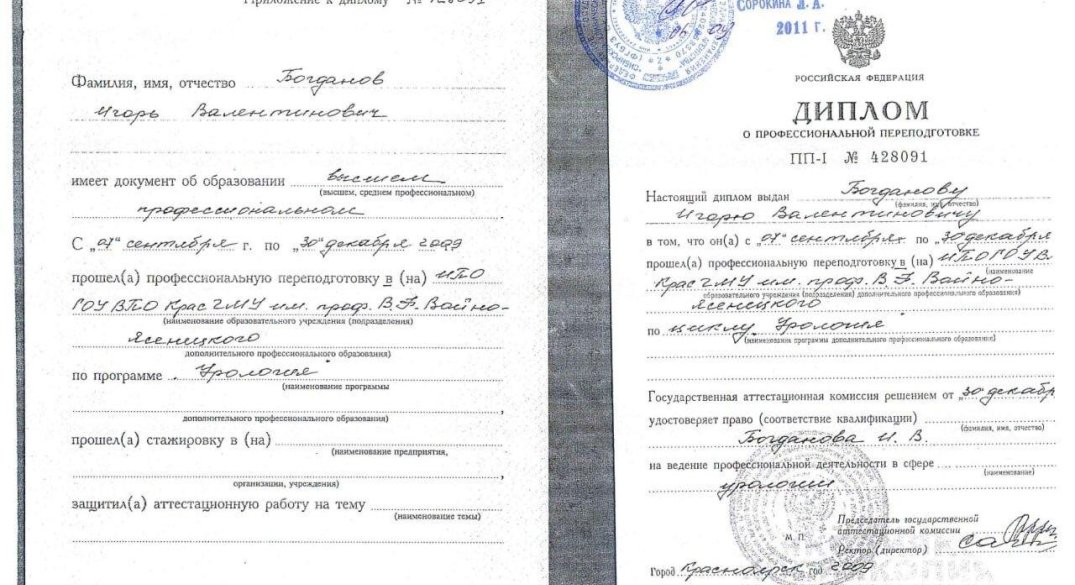 Приложение к диплому № 428091
Фамилия, имя, отчество Богданов
Игорь Валентинович
имеет документ об образовании высшем
(высшем, среднем профессиональном)
профессиональном
С „01" сентября г. по „30" декабря 2009
прошел(а) профессиональную переподготовку в (на) ИПО
ГОУ ВПО КрасГМУ им. проф. В.Ф. Войно-
(наименование образовательного учреждения (подразделения)
Ясенецкого
дополнительного профессионального образования)
по программе „Урология"
(наименование программы
дополнительного профессионального образования)
прошел(а) стажировку в (на)
(наименование предприятия,
организации, учреждения)
защитил(а) аттестационную работу на тему
(наименование темы)
СОРОКИНА Л. А.
2011 г.
РОССИЙСКАЯ ФЕДЕРАЦИЯ
ДИПЛОМ
О ПРОФЕССИОНАЛЬНОЙ ПЕРЕПОДГОТОВКЕ
ПП-I № 428091
Настоящий диплом выдан Богданову
(фамилия, имя, отчество)
Игорю Валентиновичу
в том, что он(а) с „01" сентября по „30 декабря
прошел(а) профессиональную переподготовку в (на) ИПО ГОУ В
(наименование
КрасГМУ им. проф. В.Ф. Войно-
образовательного учреждения (подразделения) дополнительного профессионального образования)
Ясенецкого
по циклу „Урология"
(наименование программы дополнительного профессионального образования)
Государственная аттестационная комиссия решением от „30 декабр
удостоверяет право (соответствие квалификации)
(фамилия, имя, отчество)
Богданова И. В.
на ведение профессиональной деятельности в сфере
(наименование)
урологии
Председатель государственной
аттестационной комиссии
М. П.
Ректор (директор)
Город Красноярск год 2009